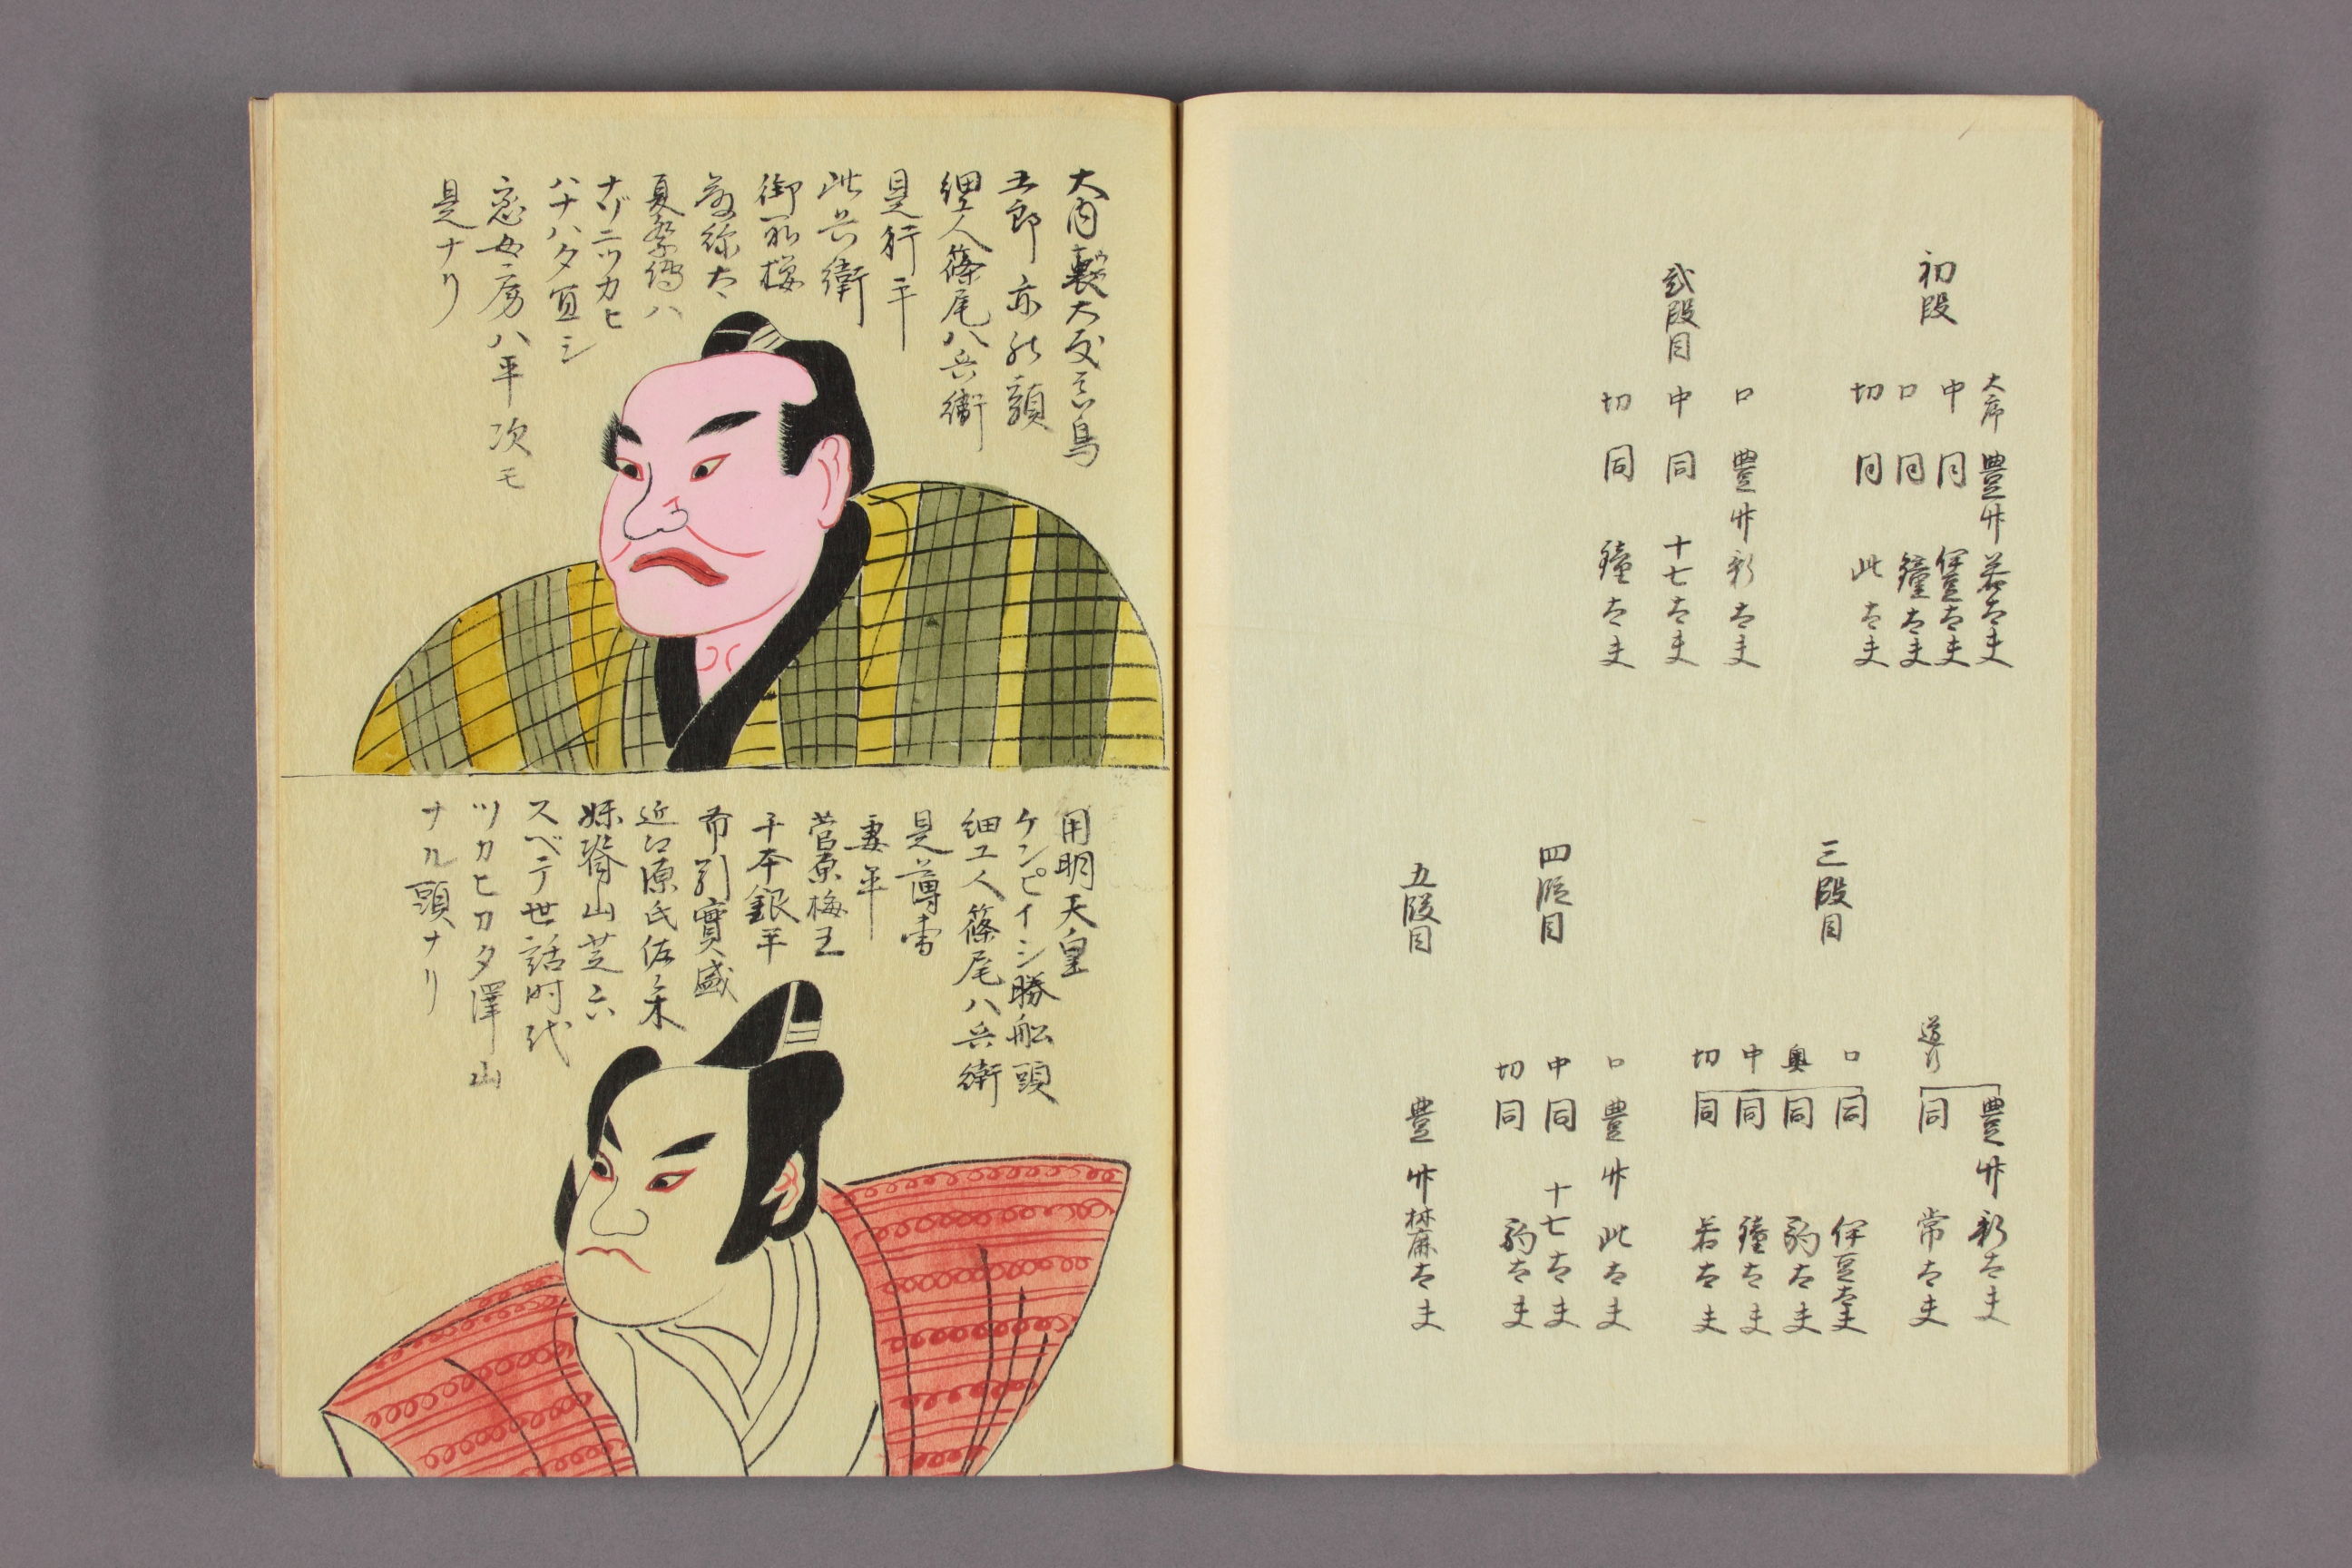 初段
大序 豊竹若太夫
中 同 伊豆太夫
口 同 鐘太夫
切 同 此太夫
弐段目
口 豊竹新太夫
中 同 十七太夫
切 同 鐘太夫
三段目
豊竹新太夫
道行 同 常太夫
口 同 伊豆太夫
奥 同 駒太夫
中 同 鐘太夫
切 同 若太夫
四段目
口 豊竹此太夫
中 同 十七太夫
切 同 駒太夫
五段目
豊竹麻太夫
大内裏大友真鳥
五郎亦 頭
細工人篠尾八兵衛
是 平
此兵衛
御所桜
藤弥太
夏祭傳八
ナドニツカヒ
ハナハタ宜シ
恋女房八平次モ
是ナリ
用明天皇
ケンピイシ勝舩頭
細工人篠尾八兵衛
是 
妻平
菅原梅王
千本銀平
布引實盛
近江源氏佐々木
妹脊山芝六
スベテ世話時代
ツカヒカタ澤山
ナル頭ナリ